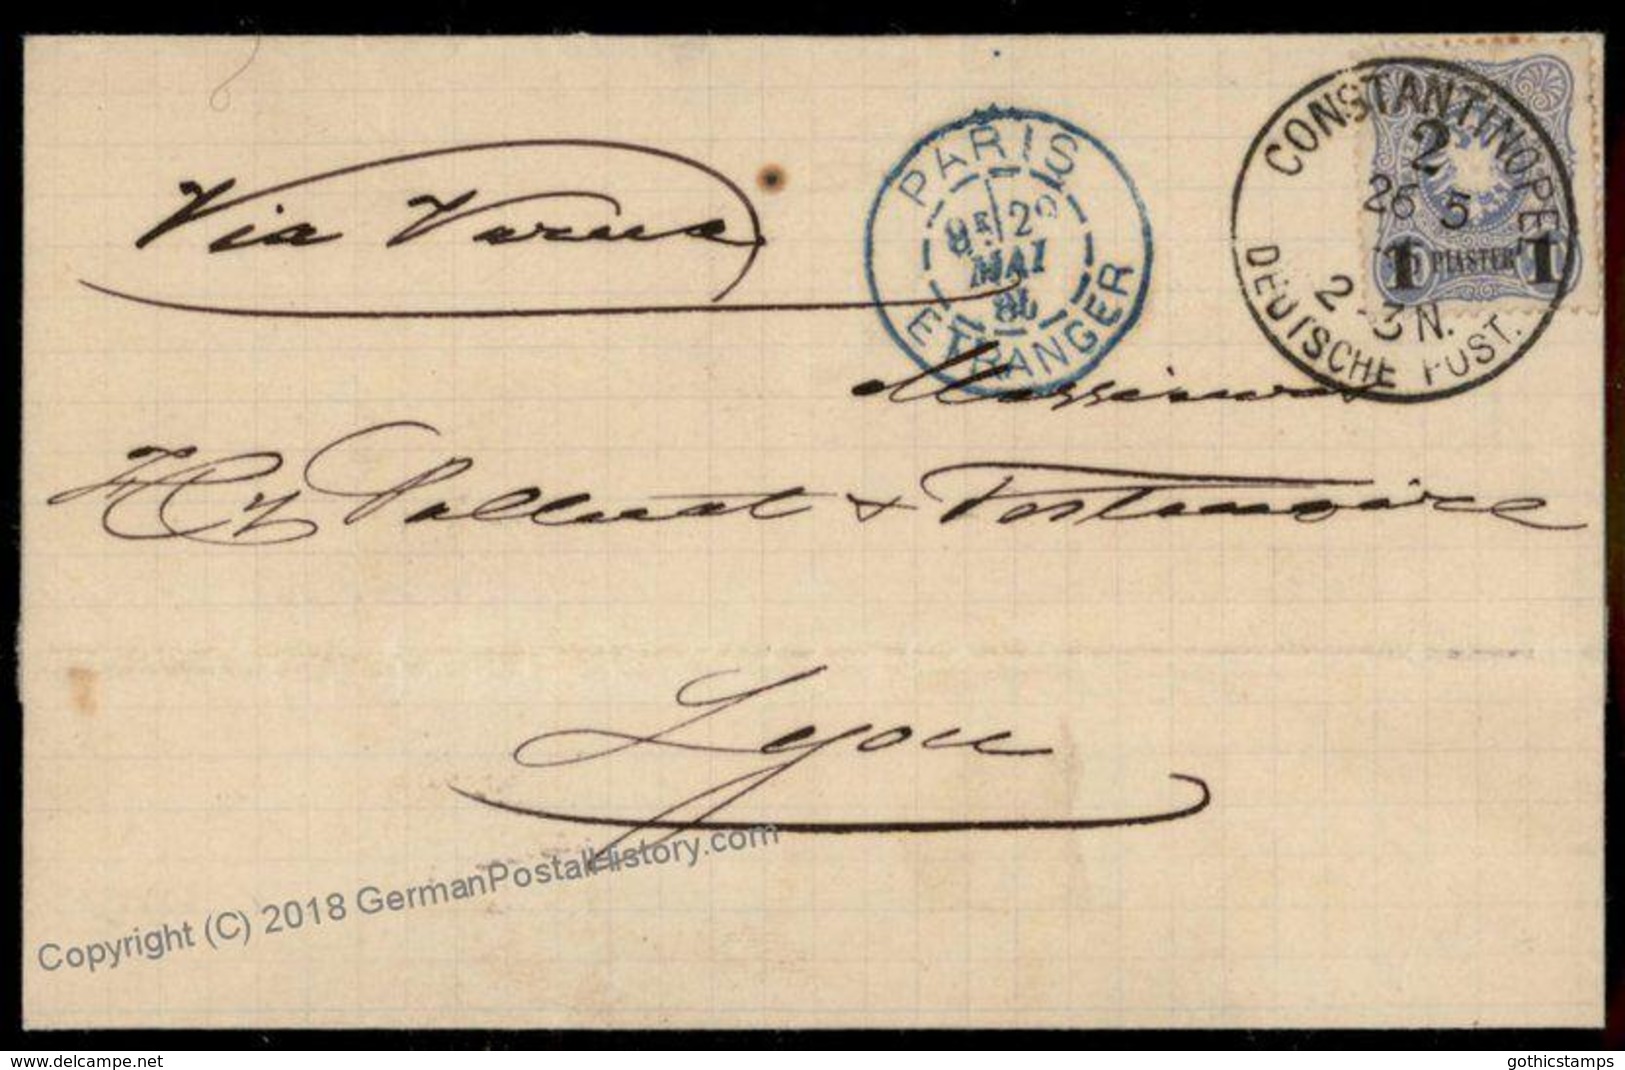 Via Varna
PARIS
29
MAI
ETRANGER
CONSTANTINOPEL
2
26 5
2-3 N.
DEUTSCHE POST.
1 PIASTER 1
Messieurs
Palluat & Testenoire
Lyon
Copyright (C) 2018 GermanPostalHistory.com
www.delcampe.net
gothicstamps